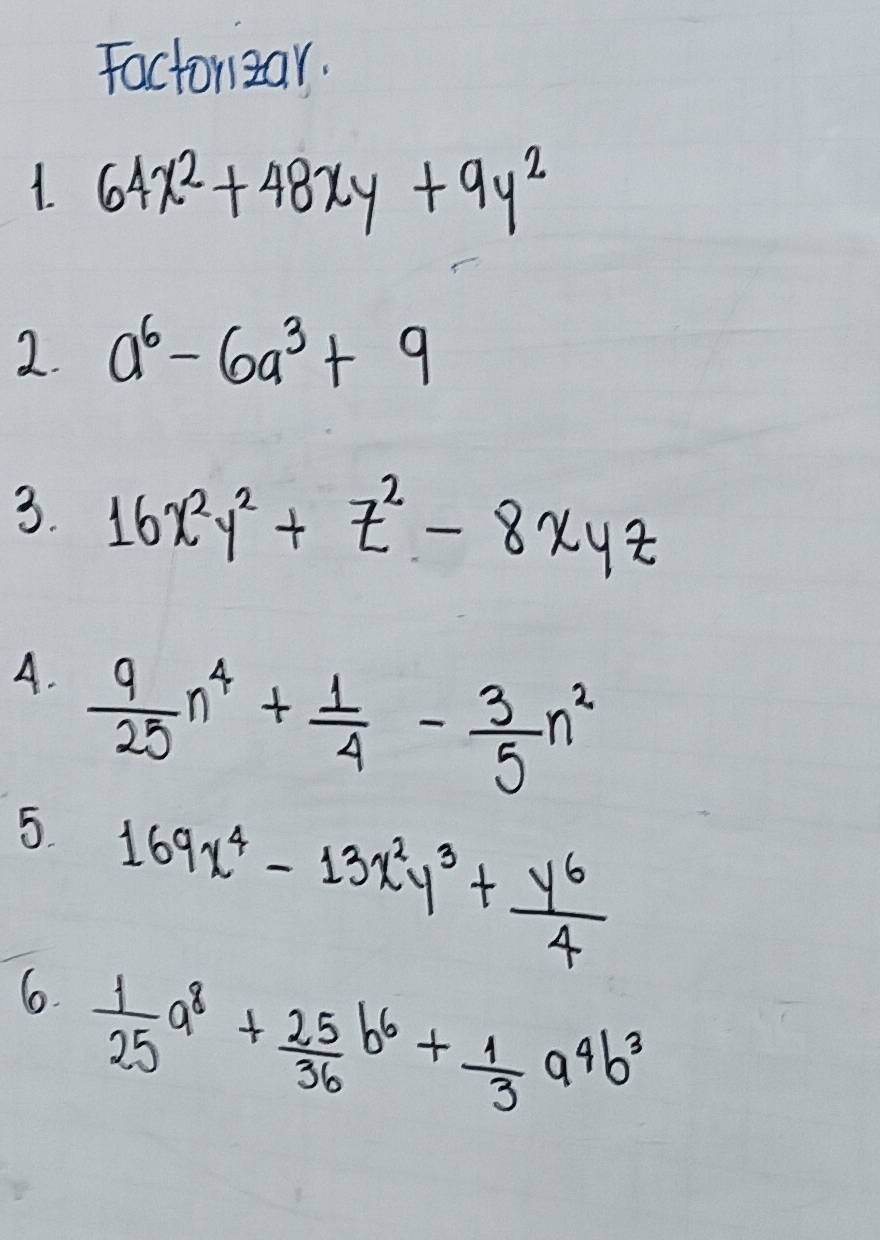 Factorizar.
1. 64x² + 48xy + 9y²
2. a⁶ - 6a³ + 9
3. 16x²y² + z² - 8xyz
4. 9/25 n⁴ + 1/4 - 3/5 n²
5. 169x⁴ - 13x²y³ + y⁶/4
6. 1/25 a⁸ + 25/36 b⁶ + 1/3 a⁴b³